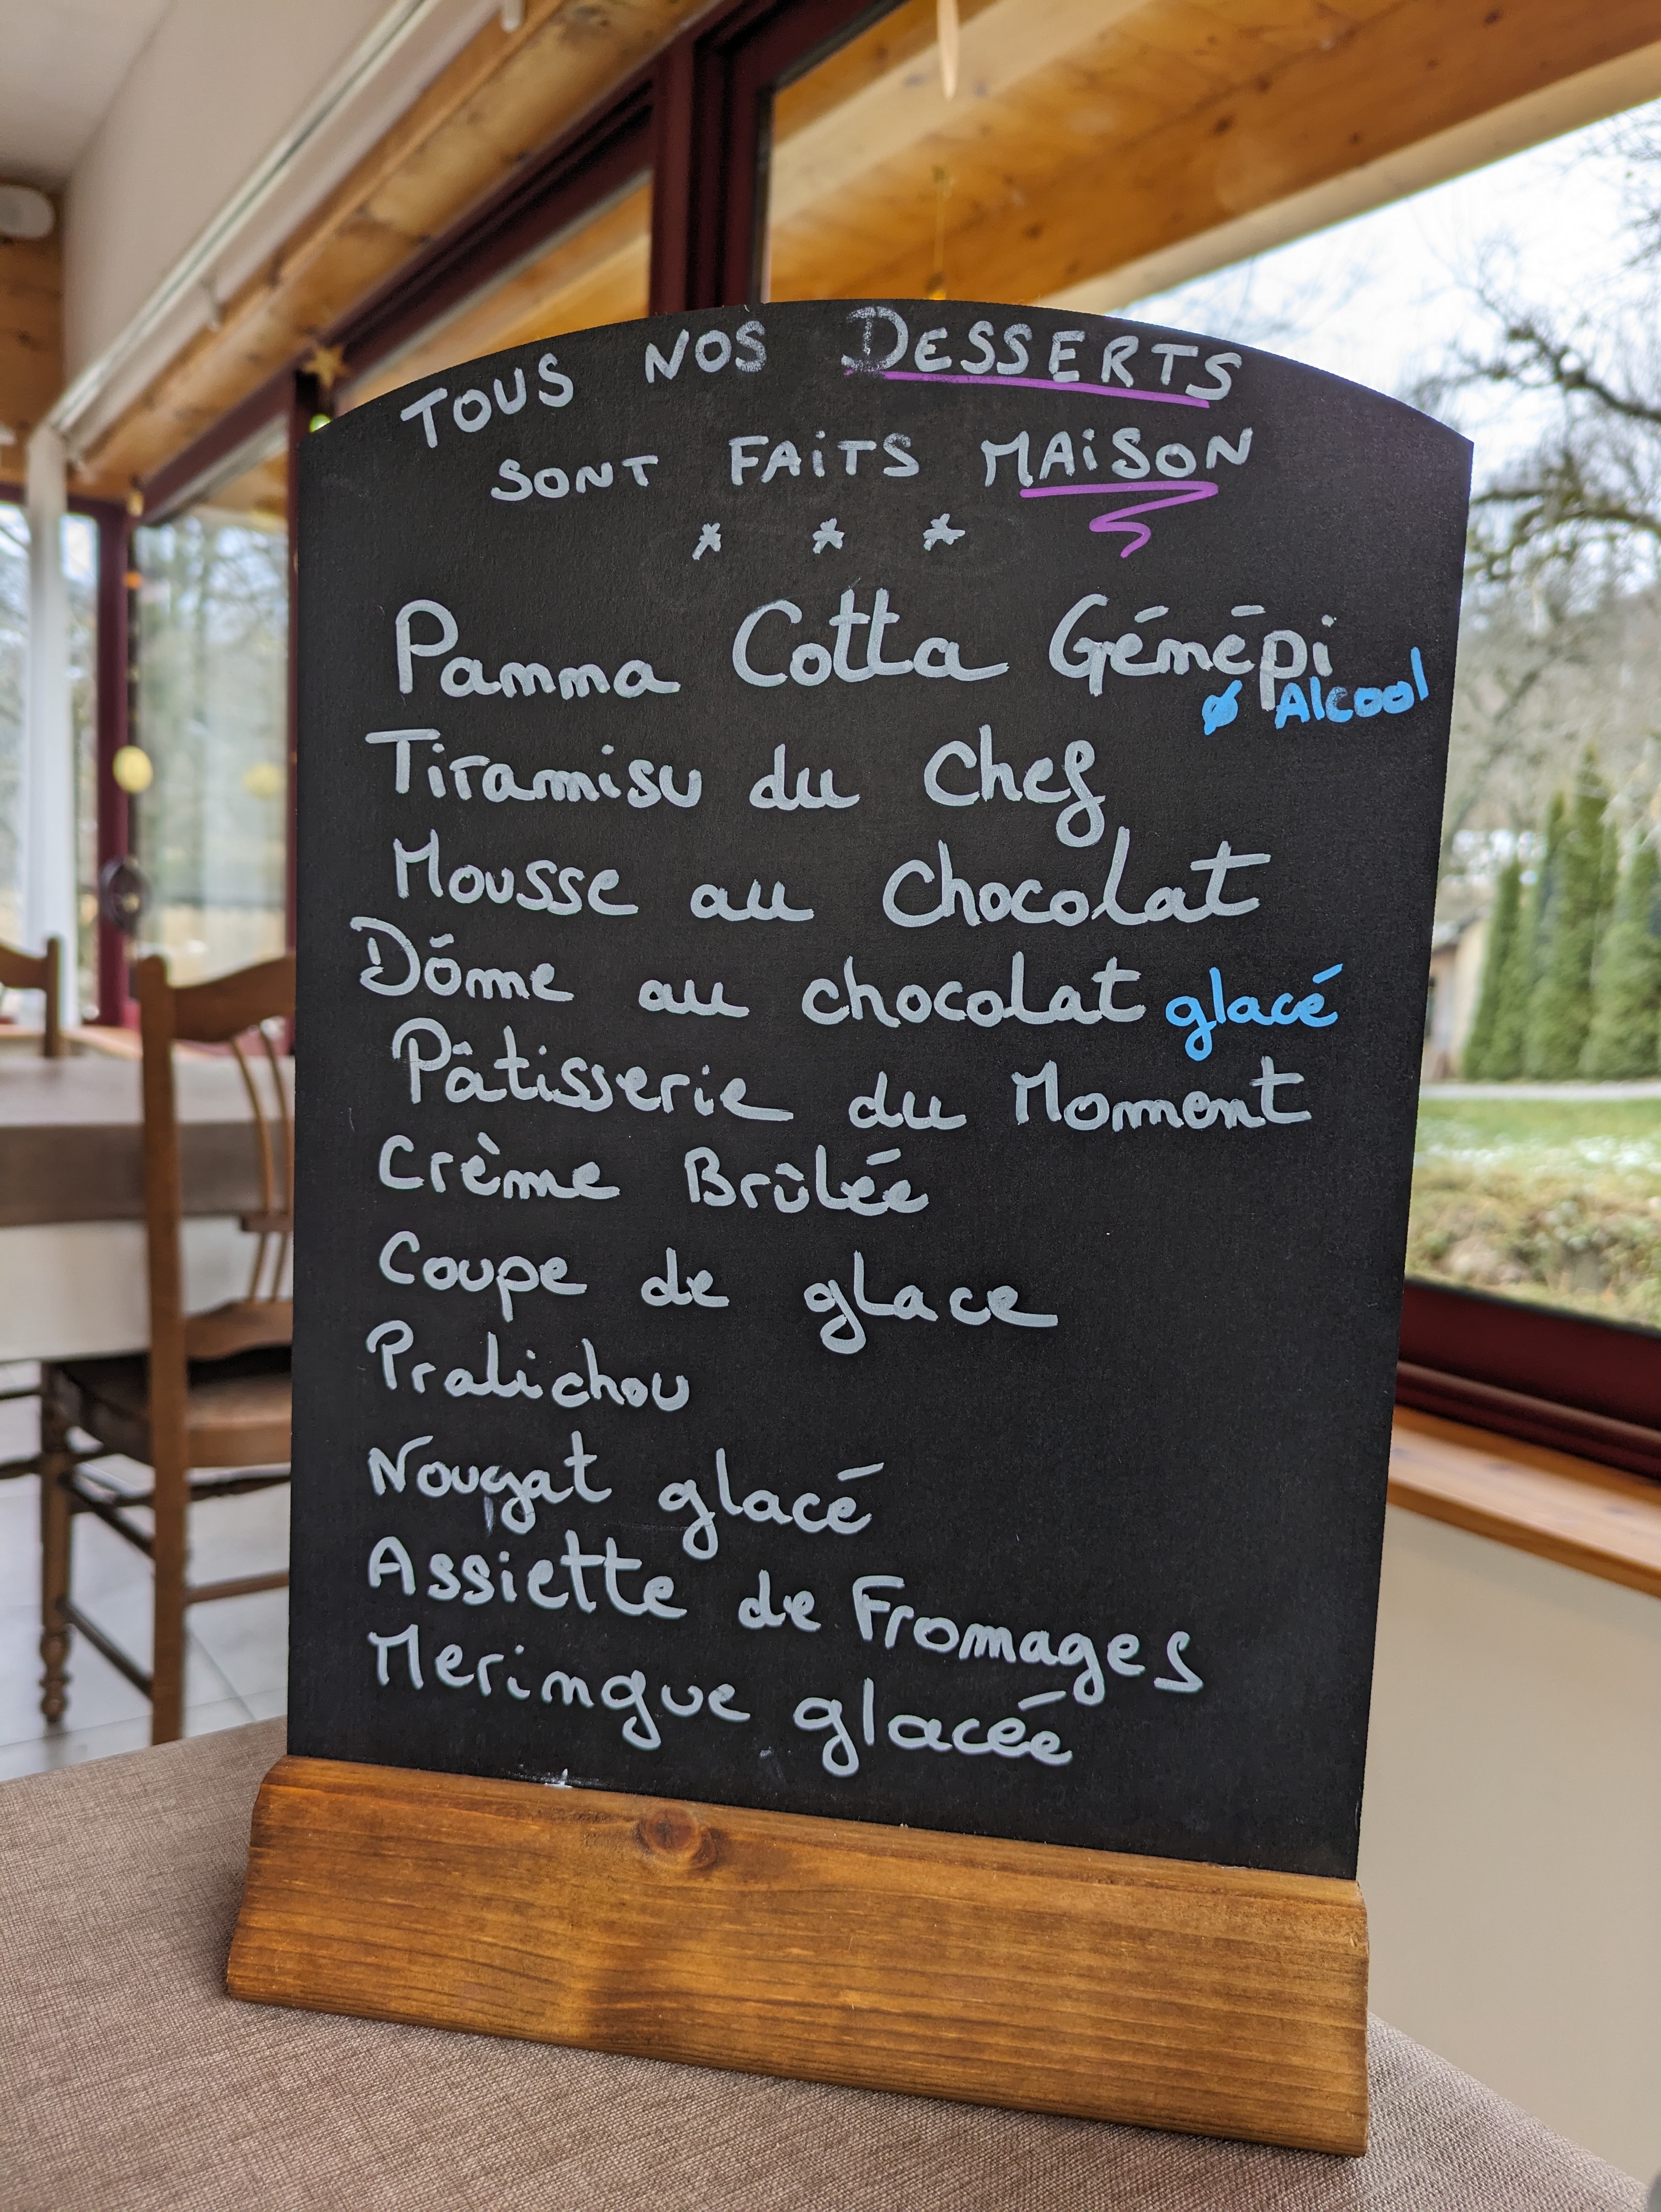 TOUS NOS DESSERTS
SONT FAITS MAISON
* * *
Panna Cotta Génépi
Ø Alcool
Tiramisu du Chef
Mousse au Chocolat
Dôme au chocolat glacé
Pâtisserie du Moment
Crème Brûlée
Coupe de glace
Pralichou
Nougat glacé
Assiette de Fromages
Meringue glacée